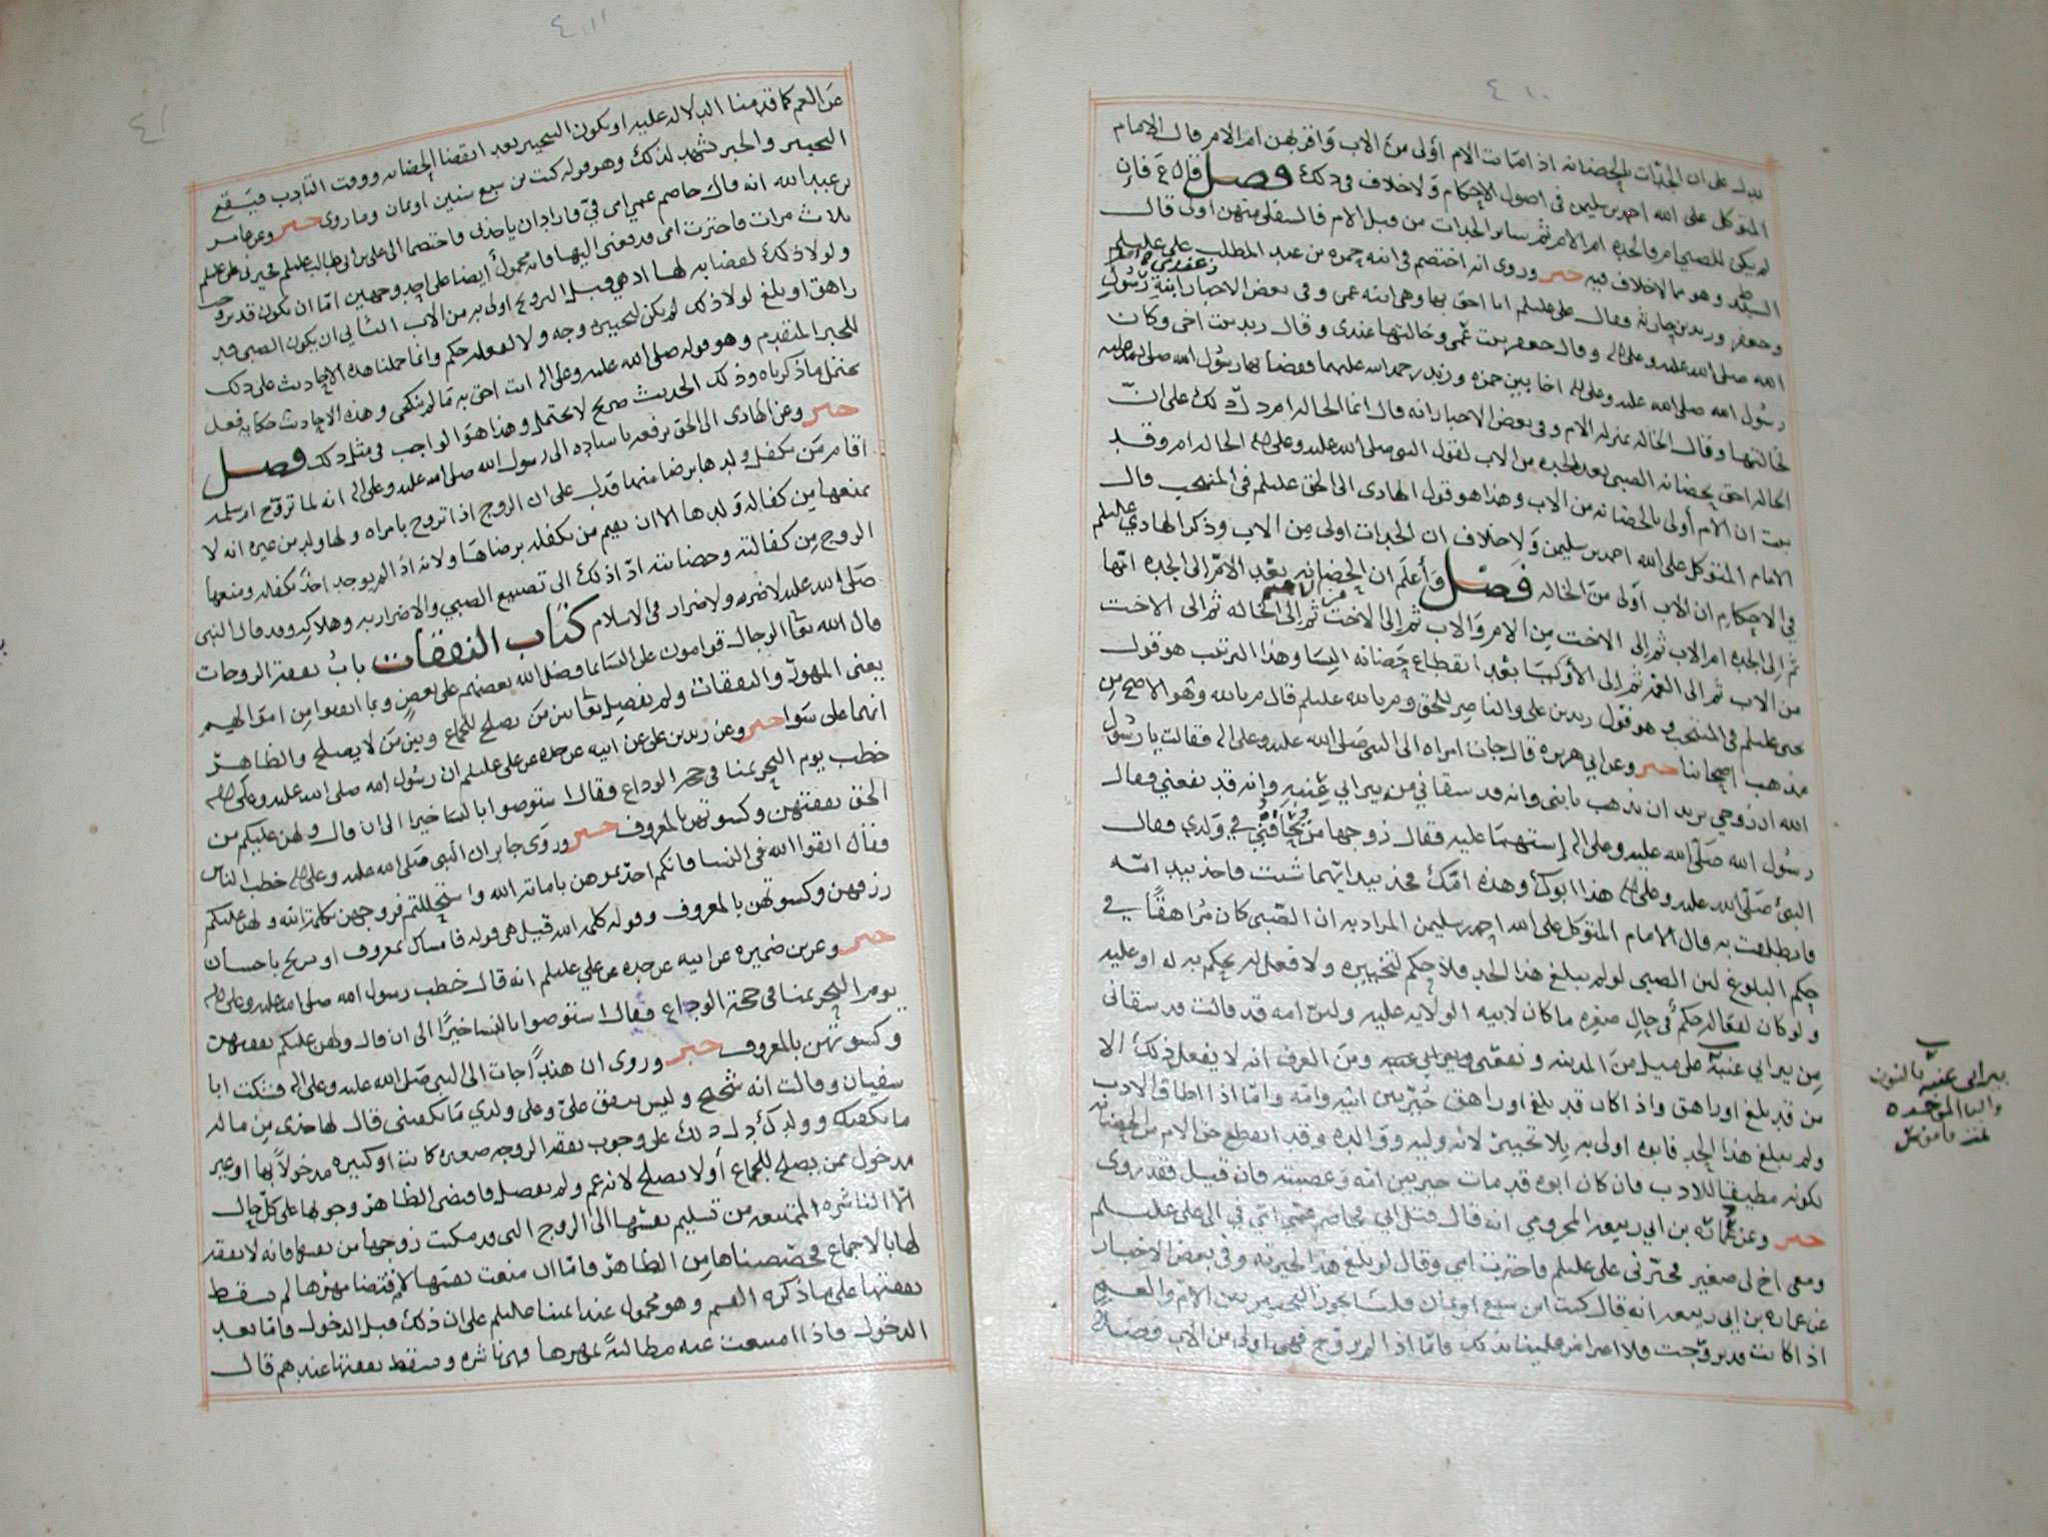 ٤١٠
يدل على ان الجدات بالحضانه اذا ماتت الام أولى من الاب وأقربهن ام الام قال الامام
المتوكل على الله احمد بن سليمن في اصول الاحكام ولا خلاف في ذلك فصل فإن
لم يكن للصبي ام فالجده ام الام ثم سائر الجدات من قبل الام فالسفلى منهن اولى قال
السيد ط وهو مما لا خلاف فيه خبر وروى انه اختصم في ابنه حمزه بن عبد المطلب علي عليلم
وجعفر وزيد بن حارثه فقال علي عليلم انا احق بها وهي ابنه عمي وفي بعض الاخبار وعندي ابنة رسول
الله صلى الله عليه وعلى اله وقال جعفر بنت عمي وخالتها عندي وقال زيد بنت اخي وكان
رسول الله صلى الله عليه وعلى اله اخا بين حمزه وزيد رحمه الله عليهما فقضا بها رسول الله صلى الله عليه
لخالتها وقال الخاله بمنزله الام وفي بعض الاخبار انه قال انما الخاله ام دل ذلك على ان
الخاله احق بحضانه الصبي بعد الجده من الاب لقول النبي صلى الله عليه وعلى اله الخاله ام وقد
ثبت ان الام أولى بالحضانه من الاب وهذا هو قول الهادي الى الحق عليلم في المنتخب وقال
الامام المتوكل على الله احمد بن سليمن ولا خلاف ان الجدات اولى من الاب وذكر الهادي عليلم
في الاحكام ان الاب أولى من الخاله فصل وأعلم ان الحضانه بعد الام الى الجده امها
ثم إلى الجده ام الاب ثم إلى الاخت من الام والاب ثم إلى الاخت من الام ثم إلى الخاله ثم إلى الاخت
من الاب ثم الى العمه ثم إلى الأوليا بعد انقطاع حضانه النسا وهذا الترتيب هو قول
يحيى عليلم في المنتخب وهو قول زيد بن علي والناصر للحق وم بالله عليلم قال م بالله وهو الاصح من
مذهب اصحابنا خبر وعن ابي هريره قال جات امراه الى النبي صلى الله عليه وعلى اله فقالت يا رسول
الله ان زوجي يريد ان يذهب بابني وانه قد سقاني من بير ابي عنبه وانه قد نفعني فقال
رسول الله صلى الله عليه وعلى اله إستهما عليه فقال زوجها من يحاقني في ولدي فقال
النبي صلى الله عليه وعلى اله هذا ابوك وهذه امك فخذ بيد ايهما شئت فاخذ بيد امه
فانطلقت به قال الامام المتوكل على الله احمد بن سليمن المراد به ان الصبي كان مراهقاً في
حكم البلوغ لان الصبي لو لم يبلغ هذا الحد فلا حكم لتخييره ولا فعل له يحكم به له او عليه
ولو كان لفعاله حكم في حال صغره ما كان لابيه الولايه عليه ولان امه قد قالت قد سقاني
مِن بير ابي عنبة على ميل من المدينه ونفعني ومن العرف انه لا يفعل ذلك الا
من قد بلغ او راهق واذا كان قد بلغ او راهق خُيّر بين ابيه وامه واما اذا اطاق الادب
ولم يبلغ هذا الحد فابوه اولى به بلا تخيير لانه وليه ووالده وقد انقطع حق الام من الحضانه
لكونه مطيقا للادب فان كان ابوه قد مات خير بين امه وعصبته فان قيل فقد روى
خبر وعن عُمارة بن ابي ربيعه المخزومي انه قال قتل ابي فخاصم عمي امي في الى علي عليلم
ومعي اخ لي صغير فخيرني علي عليلم فاخترت امي وقال لو بلغ هذا لخيرته وفي بعض الاخبار
عن عماره بن ابي ربيعه انه قال كنت ابن سبع او ثمان قلنا يجوز التخيير بين الام والعم
اذا كانت قد تزوجت فلا اعتراض علينا بذلك فاما اذا لم تزوج فهي اولى من الاب فضلا
بير ابي عنبة بالنون
والبا الموحده
تمت قاموس
٤١١
٤١
عن العم كما قدمنا الدلاله عليه او يكون التخيير بعد انقضا الحضانه ووقت التاديب فيقع
التخيير والخبر يشهد لذلك وهو قوله كنت بن سبع سنين او ثمان وما روى خبر وعن عامر
بن عبد الله انه قال خاصم عمي امي فيّ فاراد ان ياخذني فاختصما الى علي بن ابي طالب عليلم فخيرني علي عليلم
ثلاث مرات فاخترت امي فدفعني اليها فانه محمول أيضا على احد وجهين امّا ان يكون قد تزوجت
ولولا ذلك لقضا به لها اذ هي قبل التزويج اولى به من الاب الثاني ان يكون الصبي قد
راهق او بلغ لولا ذلك لم يكن لتخييره وجه ولا لفعله حكم وانما حملنا هذه الاحاديث على ذلك
للخبر المتقدم وهو قوله صلى الله عليه وعلى اله انت احق به مَا لم تنكحي وهذه الاحاديث حكايه فعل
يحتمل ما ذكرناه وذلك الحديث صريح لا يحتمل وهذا هو الواجب في مثل ذلك فصل
خبر وعن الهادي الى الحق يرفعه باسناده الى رسول الله صلى الله عليه وعلى اله انه لما تزوج ام سلمه
أقام من يكفل ولدها برضا منها فدل على ان الزوج اذا تزوج بامراه ولها ولد من غيره انه لا
يمنعها من كفاله ولدها الا ان يقيم من يكفله برضاها ولانه اذا لم يوجد احدٌ يكفله ومنعها
الزوج من كفالته وحضانته ادّا ذلك الى تضييع الصبي والاضرار به وهلاكه وقد قال النبي
صلى الله عليه لا ضرر ولا ضرار في الاسلام كتاب النفقات بابُ نفقة الزوجات
قال الله تعا الرجال قوامون على النسا بما فضل الله بعضهم على بعض وبما انفقوا مِن امَوالهم
يعني المهور والنفقات ولم يفصِل تعا بين من يصلح للجماع وبين من لا يصلح والظاهر
انهما على سوا خبر وعن زيد بن علي عن ابيه عن جده عن علي عليلم ان رسول الله صلى الله عليه وعلى اله
خطب يوم النحر بمنا في حجه الوداع فقال استوصوا بالنسا خيرا الى ان قال ولهن عليكم من
الحق نفقتهن وكسوتهن بالمعروف خبر وروَى جابر ان النبي صلى الله عليه وعلى اله خطب الناس
فقال اتقوا الله في النسا فانكم اخذتموهن بامانة الله واستحللتم فروجهن بكلمة الله ولهن عليكم
رزقهن وكسوتهن بالمعروف وقوله كلمه الله قيل هي قوله فامساك بمعروف او تسريح باحسان
خبر وعن بن ضميره عن ابيه عن جده عن علي عليلم انه قال خطب رسول الله صلى الله عليه وعلى اله
يوم النحر بمنا في حجة الوداع فقال استوصوا بالنسا خيرًا الى ان قال ولهن عليكم نفقتهن
وكسوتهن بالمعروف خبر وروى ان هندًا جات الى النبي صَلى الله عليه وعلى اله فشكت ابا
سفيان وقالت انه شحيح وليس ينفق عليّ وعلى ولدي مَا يكفيني قال لها خذي مِن ماله
ما يكفيك وولدك دل ذلك على وجوب نفقه الزوجه صغيره كانت او كبيره مدخولاً بها او غير
مدخول ممن يصلح للجماع أولا يصلح لانه عم ولم يفصل فاقتضى الظاهر وجوبها على كل حال
الا الناشزه الممتنعه من تسليم نفسها الى الزوج التي قد مكنت زوجها من نفسها فانه لا نفقه
لها بالاجماع فخصصناها مِن الظاهر فامّا ان منعت نفسها لاقتضا مهرها لم تسقط
نفقتها على ما ذكره القسم وهو محمول عند ائمتنا عليلم على ان ذلك قبل الدخول فامّا بعد
الدخول فاذا امتنعت عنه مطالبةً بمهرها فهي ناشزه وتسقط نفقتها عندهم قال